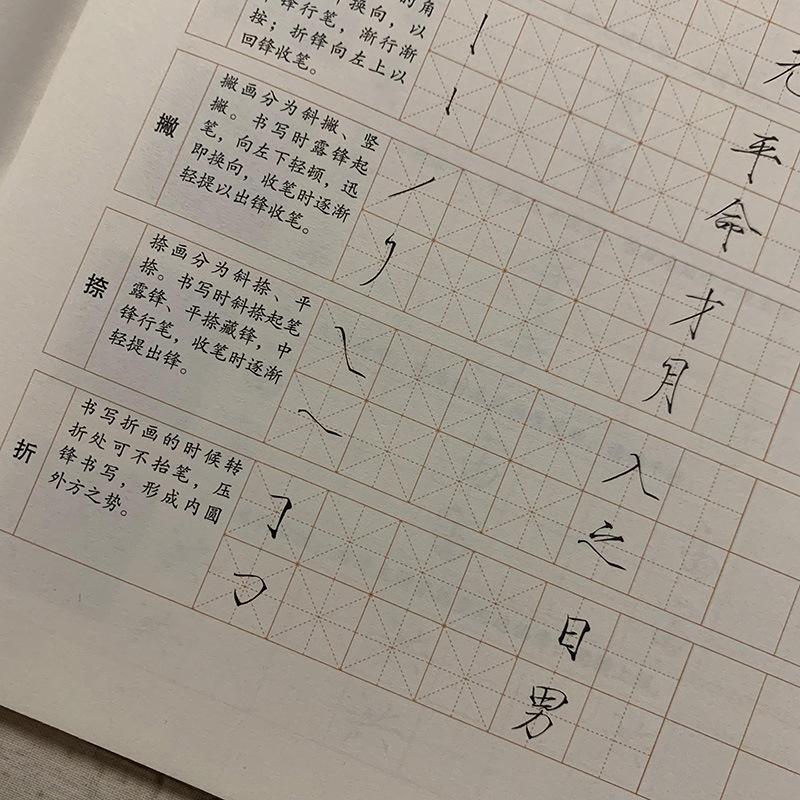 换向，以
锋行笔，渐行渐
按；折锋向左上以
回锋收笔。
撇
撇画分为斜撇、竖
撇。书写时露锋起
笔，向左下轻顿，迅
即换向，收笔时逐渐
轻提以出锋收笔。
平
命
捺
捺画分为斜捺、平
捺。书写时斜捺起笔
露锋、平捺藏锋，中
锋行笔，收笔时逐渐
轻提出锋。
才
月
折
书写折画的时候转
折处可不抬笔，压
锋书写，形成内圆
外方之势。
入
之
日
男